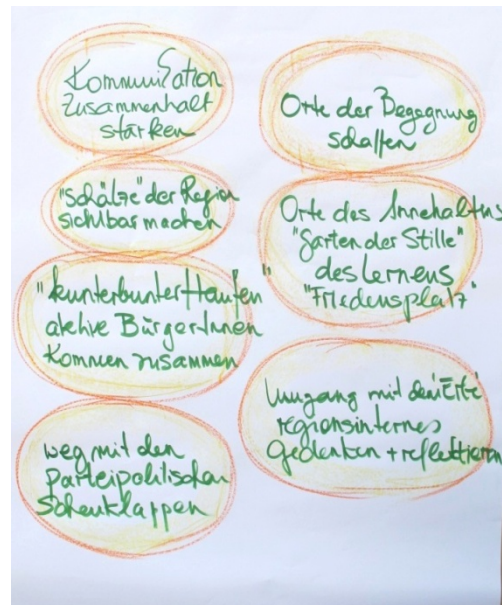 Kommunikation
Zusammenhalt
stärken
"Schätze" der Region
sichtbar machen
"kunterbunter Haufen"
aktive BürgerInnen
kommen zusammen
weg mit den
parteipolitischen
Scheuklappen
Orte der Begegnung
schaffen
Orte des Innehaltens
"Garten der Stille"
des Lernens
"Friedensplatz"
Umgang mit dem "Erbe"
regionsinternes
Gedenken + reflektieren